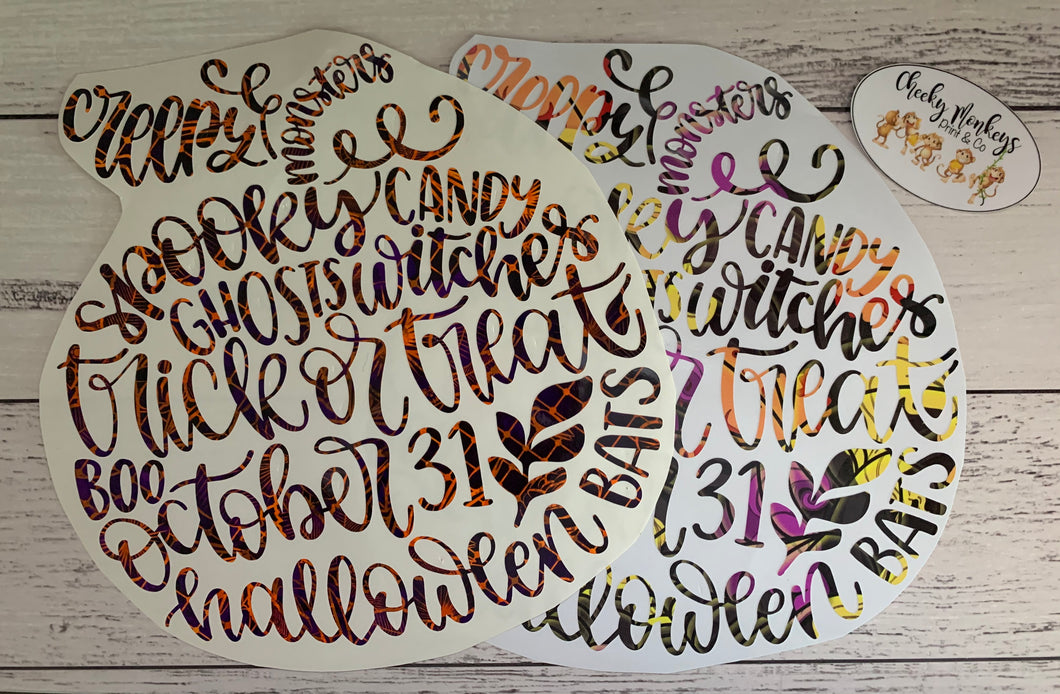 creepy
monsters
spooky CANDY
GHOSTS witches
trick or treat
BOO
October 31
BATS
halloween
creepy
monsters
y CANDY
TS witches
r treat
r 31
BATS
lloween
Cheeky Monkeys
Print & Co